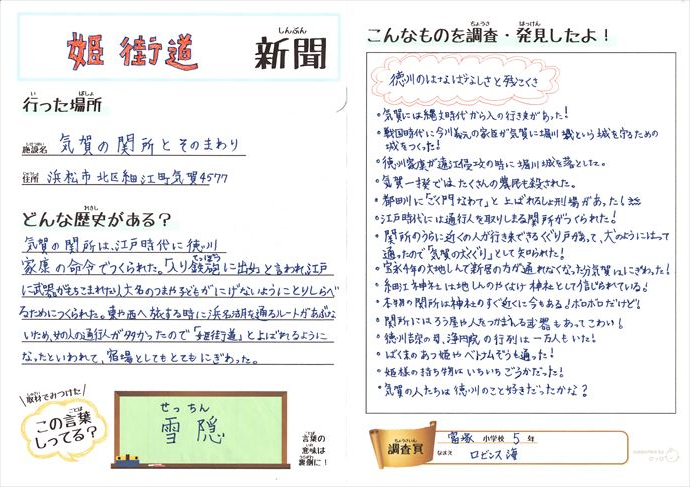 姫街道
新聞
しんぶん
行った場所
い ばしょ
施設名 気賀の関所とそのまわり
住所 浜松市北区細江町気賀4577
どんな歴史がある?
れきし
気賀の関所は、江戸時代に徳川
家康の命令でつくられた。「入り鉄砲に出女」と言われ、江戸
に武器がもちこまれたり、大名のつまや子どもがにげないようにとりしらべ
るためにつくられた。東や西へ旅する時に浜名湖を通るルートがあぶな
いため、女の人の通行人が多かったので「姫街道」とよばれるように
なったといわれて、宿場としてもとてもにぎわった。
取材でみつけた!
この言葉
しってる?
せっちん
雪隠
言葉の
意味は
裏側に!
こんなものを調査・発見したよ!
ちょうさ はっけん
徳川のはなばなしさと残こくさ
・気賀には縄文時代から人の行き来があった!
・戦国時代に今川義元の家臣が気賀に堀川城という城を守るための
城をつくった!
・徳川家康が遠江侵攻の時に堀川城を落とした。
・気賀一揆では、たくさんの農民も殺された。
・都田川に「ごく門なわて」とよばれるしょ刑場があった!
・江戸時代には通行人を取りしまる関所がつくられた!
・関所のうらに近くの人が行き来できるくぐり戸があって、犬のようにはって
通ったので「気賀の犬くぐり」として知られた!
・宝永4年の大地しんで新居の方が通れなくなった分気賀ににぎわった!
・細江神社は地しんのやくよけ神社として信じられている!
・本物の関所は神社のすぐ近くに今もある!ボロボロだけど!
・関所にはろう屋や人をつかまえる武器もあってこわい!
・徳川吉宗の母、浄円院の行列は一万人もいた!
・ばくまつのあつ姫やべけんぞうも通った!
・姫様の持ち物にいちいちごうかだった!
・気賀の人たちは徳川のこと好きだったかな?
調査員
ちょうさいん
富塚 小学校 5 年
なまえ ロビンス海